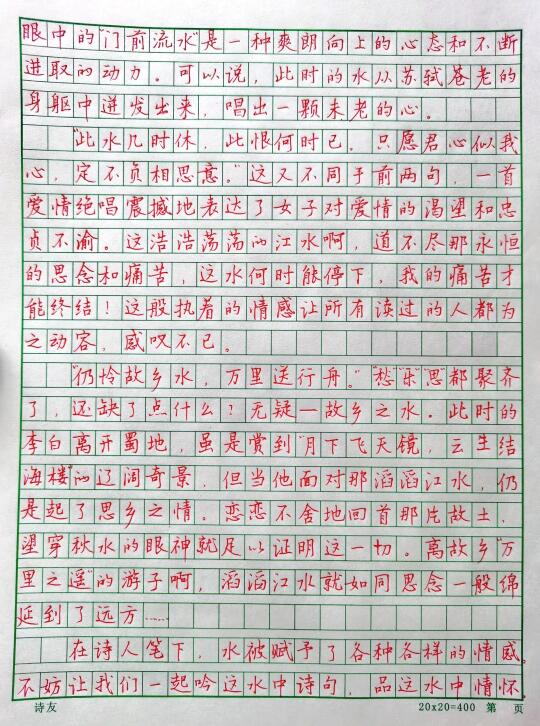 眼中的"门前流水"是一种爽朗向上的心态和不断
进取的动力。可以说，此时的水从苏轼苍老的
身躯中迸发出来，唱出一颗未老的心。
"此水几时休，此恨何时已。只愿君心似我
心，定不负相思意。"这又不同于前两句，一首
爱情绝唱震撼地表达了女子对爱情的渴望和忠
贞不渝。这浩浩荡荡的江水啊，道不尽那永恒
的思念和痛苦，这水何时能停下，我的痛苦才
能终结！这般执着的情感让所有读过的人都为
之动容，感叹不已。
"仍怜故乡水，万里送行舟。""愁""乐""思"都聚齐
了，还缺了点什么？无疑—故乡之水。此时的
李白离开蜀地，虽是赏到"月下飞天镜，云生结
海楼"的辽阔奇景，但当他面对那滔滔江水，仍
是起了思乡之情。恋恋不舍地回首那片故土，
望穿秋水的眼神就足以证明这一切。离故乡"万
里之遥"的游子啊，滔滔江水就如同思念一般绵
延到了远方……
在诗人笔下，水被赋予了各种各样的情感。
不妨让我们一起吟这水中诗句，品这水中情怀。
诗友 20x20=400 第 页